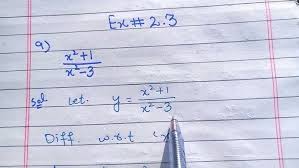 Ex # 2.3
a)
x²+1
x²-3
Sol let. y = x²+1
x²-3
Diff. w.r.t 'x